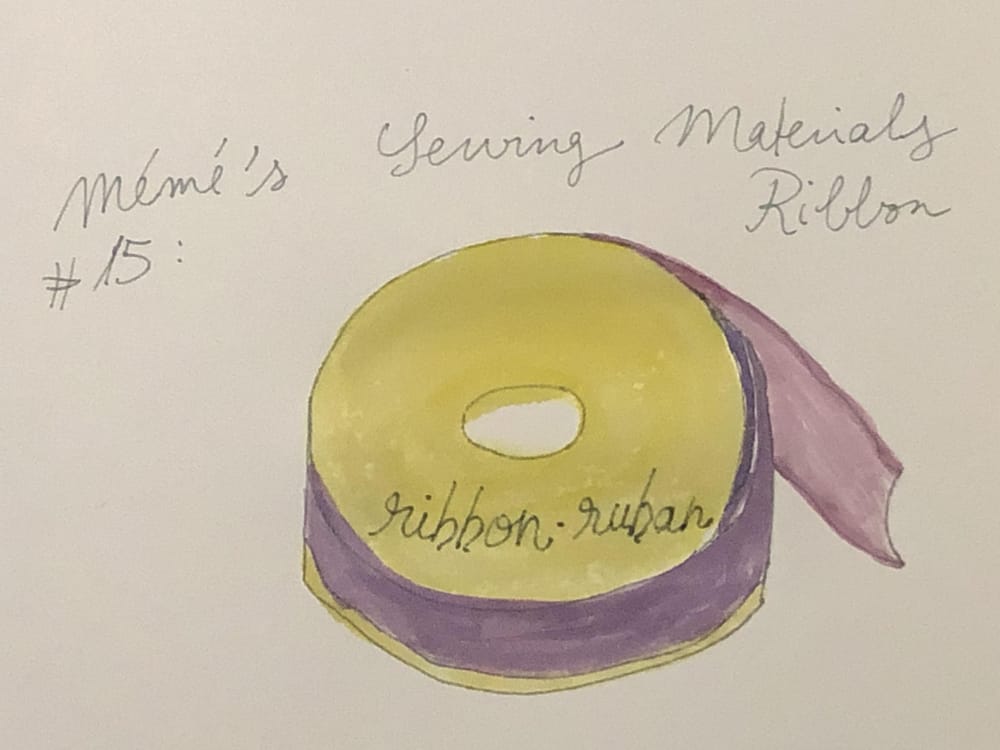 Mémé's Sewing Materials
#15: Ribbon
ribbon-ruban